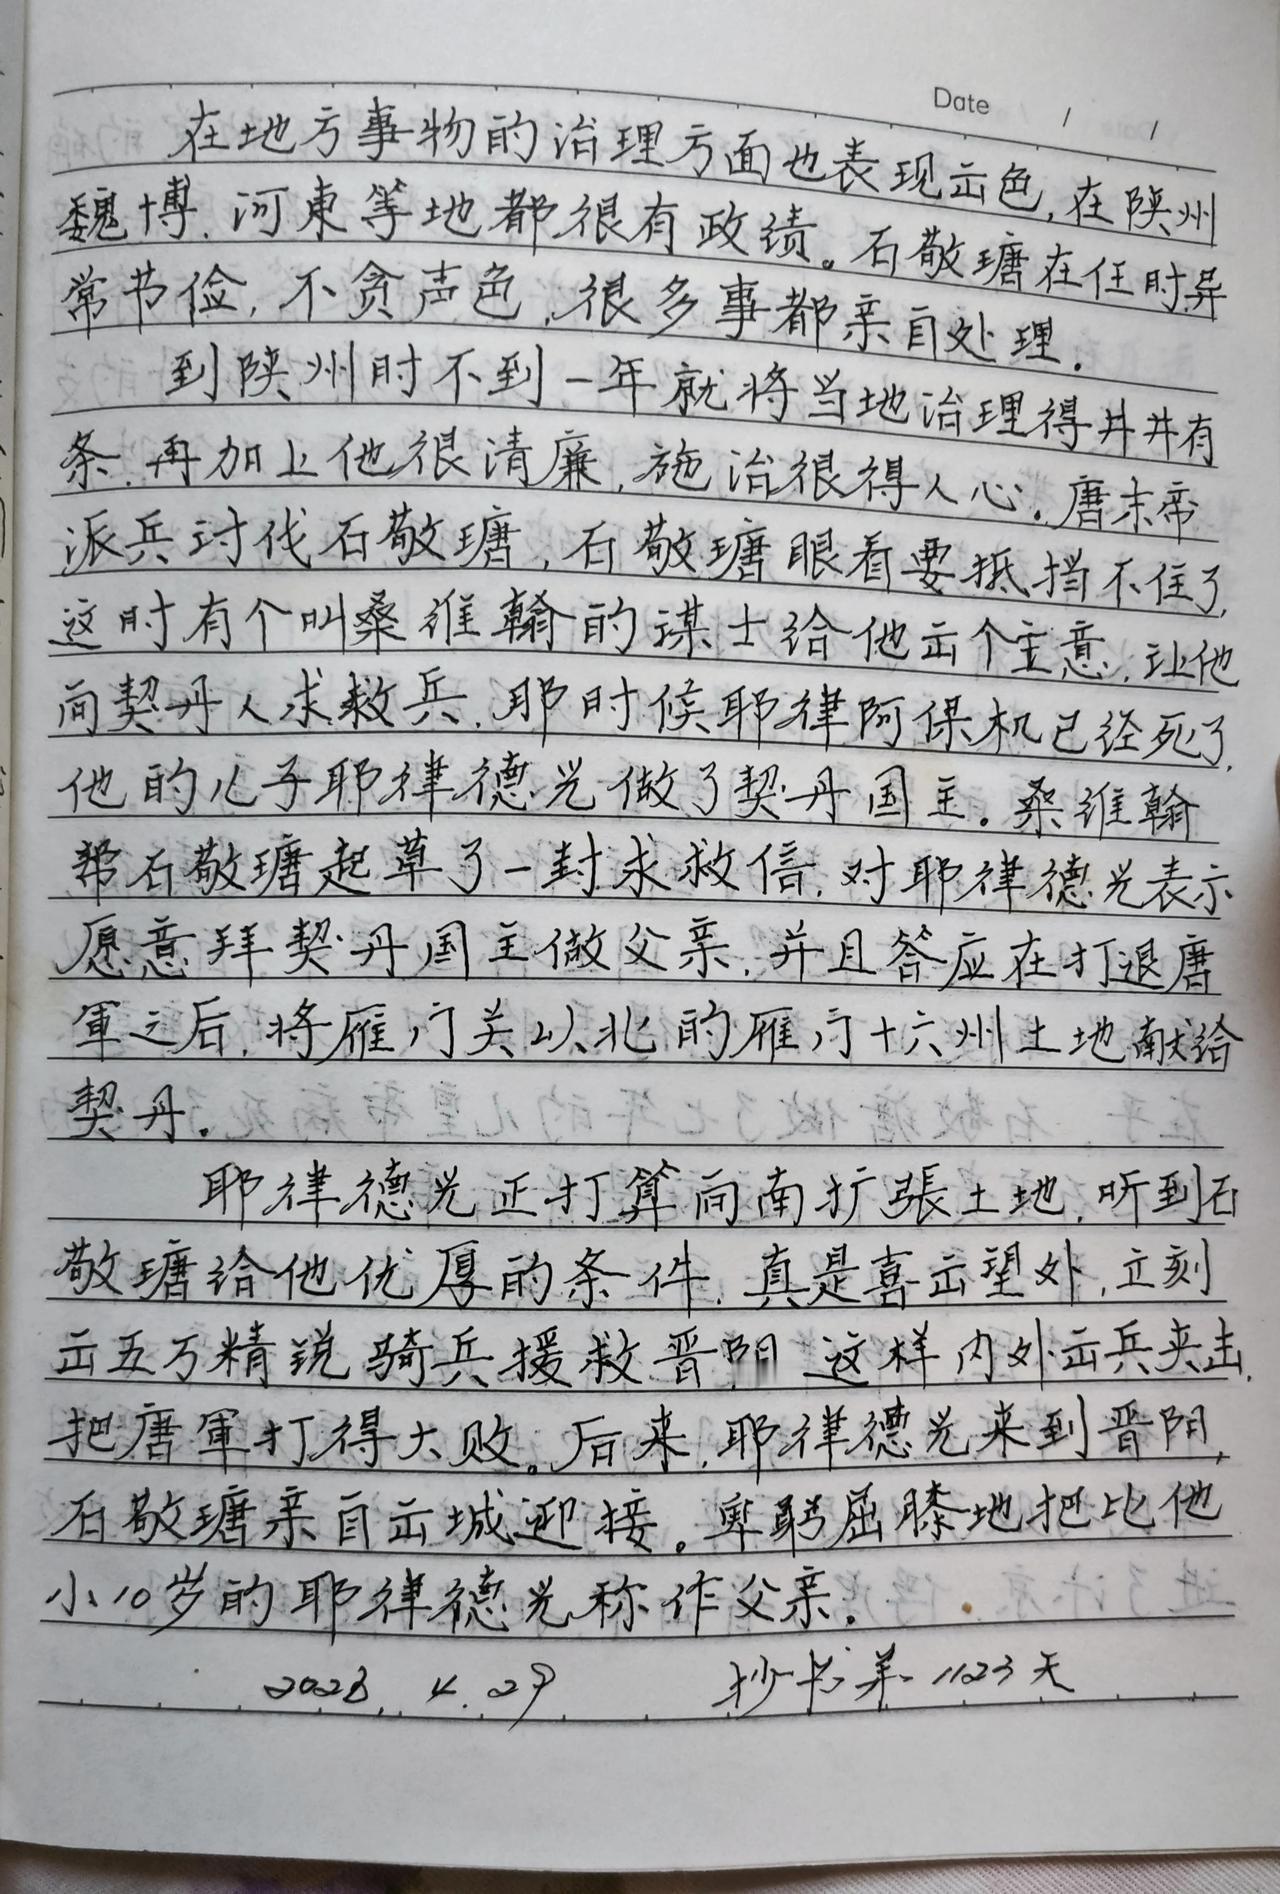 Date / /
在地方事物的治理方面也表现出色,在陕州
魏博.河東等地都很有政绩。石敬瑭在任时异
常节俭,不贪声色,很多事都亲自处理.
到陕州时不到一年就将当地治理得井井有
条.再加上他很清廉,施治很得人心.唐末帝
派兵讨伐石敬瑭,石敬瑭眼看要抵挡不住了,
这时有个叫桑维翰的谋士给他出个主意,让他
向契丹人求救兵.耶时候耶律阿保机已经死了,
他的儿子耶律德光做了契丹国主。桑维翰
帮石敬瑭起草了一封求救信,对耶律德光表示
愿意拜契丹国主做父亲,并且答应在打退唐
軍之后,将雁门关以北的雁门十六州土地献给
契丹。
耶律德光正打算向南扩張土地,听到石
敬瑭给他优厚的条件,真是喜出望外,立刻
出五万精锐骑兵援救晋阳 这样内外出兵夹击,
把唐軍打得大败。后来,耶律德光来到晋阳,
石敬瑭亲自出城迎接。卑躬屈膝地把比他
小10岁的耶律德光称作父亲。
2023.4.29 抄书第1123天